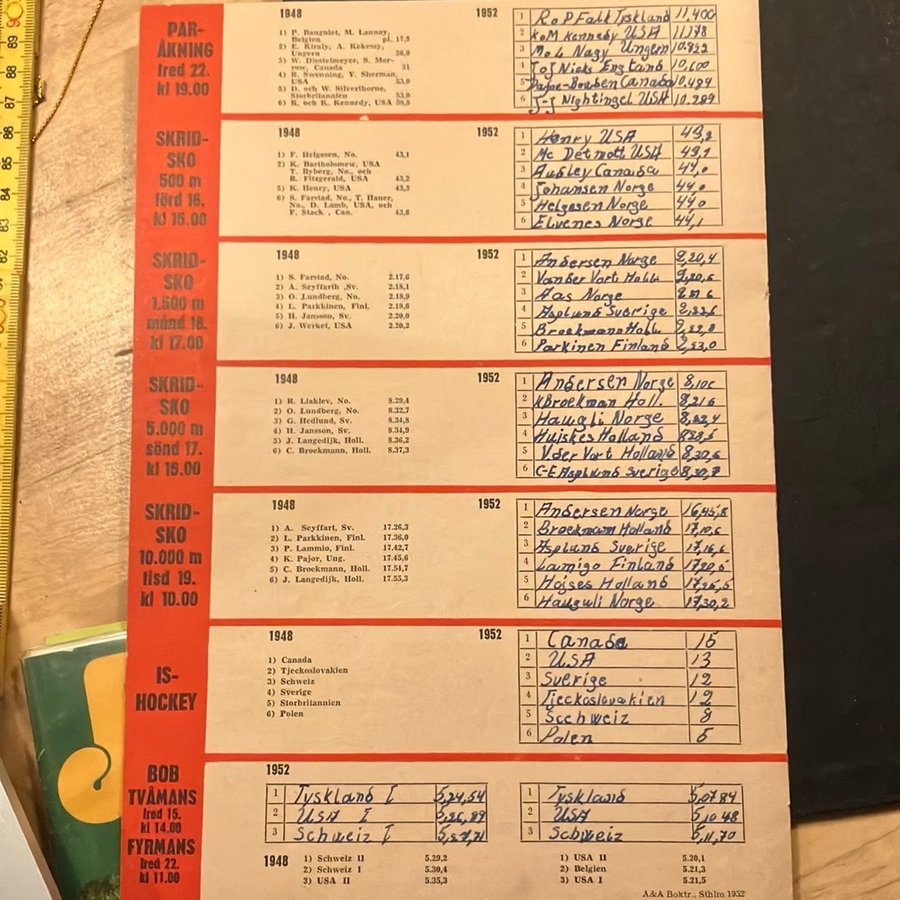 PAR-
ÅKNING
fred 22.
kl 19.00
1948
1) P. Baugniet, M. Lannoy,
Belgien pl. 17,5
2) E. Kiraly, A. Kekessy,
Ungern 26,0
3) W. Diestelmeyer, S. Mor-
row, Canada 31
4) R. Swenning, Y. Sherman,
USA 53,0
5) D. och W. Silverthorne,
Storbritannien 53,0
6) K. och K. Kennedy, USA 59,5
1952
1 R o P Falk Tyskland 11,400
2 K o M Kennedy USA 11,178
3 M o L Nagy Ungern 10.822
4 J o J Nicks England 10,600
5 Dafoe-Bowden Canada 10.489
6 J-J Nightingel USA 10.289
SKRID-
SKO
500 m
lörd 16.
kl 15.00
1948
1) F. Helgesen, No. 43,1
2) K. Bartholomew, USA
T. Byberg, No., och
R. Fitzgerald, USA 43,2
5) K. Henry, USA 43,3
6) S. Farstad, No., T. Hauer,
No., D. Lamb, USA, och
F. Stack , Can. 43,6
1952
1 Henry USA 43,2
2 Mc Detmott USA
3 Audley Canada 44,0
4 Johansen Norge 44 0
5 Helgesen Norge 44 0
6 Elvenes Norge 44,1
SKRID-
SKO
1.500 m
månd 18.
kl 17.00
1948
1) S. Farstad, No. 2.17,6
2) Å. Seyffarth ,Sv. 2.18,1
3) O. Lundberg, No. 2.18,9
4) L. Parkkinen, Finl. 2.19,6
5) H. Jansson, Sv. 2.20,0
6) J. Werket, USA 2.20,2
1952
1 Andersen Norge 2,20,4
2 Van der Vort Holl. 2,20,6
3 Aas Norge
4 Asplund Sverige 2,22,6
5 Broekmann Holl. 2,22,8
6 Parkinen Finland 2,23,0
SKRID-
SKO
5.000 m
sönd 17.
kl 16.00
1948
1) R. Liaklev, No. 8.29,4
2) O. Lundberg, No. 8.32,7
3) G. Hedlund, Sv. 8.34,8
4) H. Jansson, Sv. 8.34,9
5) J. Langedijk, Holl. 8.36,2
6) C. Broekmann, Holl. 8.37,3
1952
1 Andersen Norge
2 K Broekman Holl. 8,21 6
3 Haugli Norge 8,22,4
4 Huiskes Holland
5 V der Vort Holland 8,30,6
6 C-E Asplund Sverige 8,30,7
SKRID-
SKO
10.000 m
tisd 19.
kl 10.00
1948
1) Å. Seyffart, Sv. 17.26,3
2) L. Parkkinen, Finl. 17.36,0
3) P. Lammio, Finl. 17.42,7
4) K. Pajor, Ung. 17.45,6
5) C. Broekmann, Holl. 17.54,7
6) J. Langedijk, Holl. 17.55,3
1952
1 Andersen Norge 16,45,8
2 Broekmann Holland 17,10,6
3 Asplund Sverige 17,16,6
4 Lamigo Finland 17,20,5
5 Hojses Holland 17,25,5
6 Hauguli Norge 17,30,2
IS-
HOCKEY
1948
1) Canada
2) Tjeckoslovakien
3) Schweiz
4) Sverige
5) Storbritannien
6) Polen
1952
1 Canada 15
2 USA 13
3 Sverige 12
4 Tjeckoslovakien 12
5 Scchweiz 8
6 Polen 5
BOB
TVÅMANS
fred 15.
kl 14.00
FYRMANS
fred 22.
kl 11.00
1952
1 Tyskland I 5,24,54
2 USA I 5,26,89
3 Schweiz I 5,27,71
1 Tyskland 5,07 84
2 USA 5,10 48
3 Schweiz 5,11,70
1948
1) Schweiz II 5.29,2
2) Schweiz I 5.30,4
3) USA II 5.35,3
1) USA II 5.20,1
2) Belgien 5.21,3
3) USA I 5.21,5
A&A Boktr., Sthlm 1952